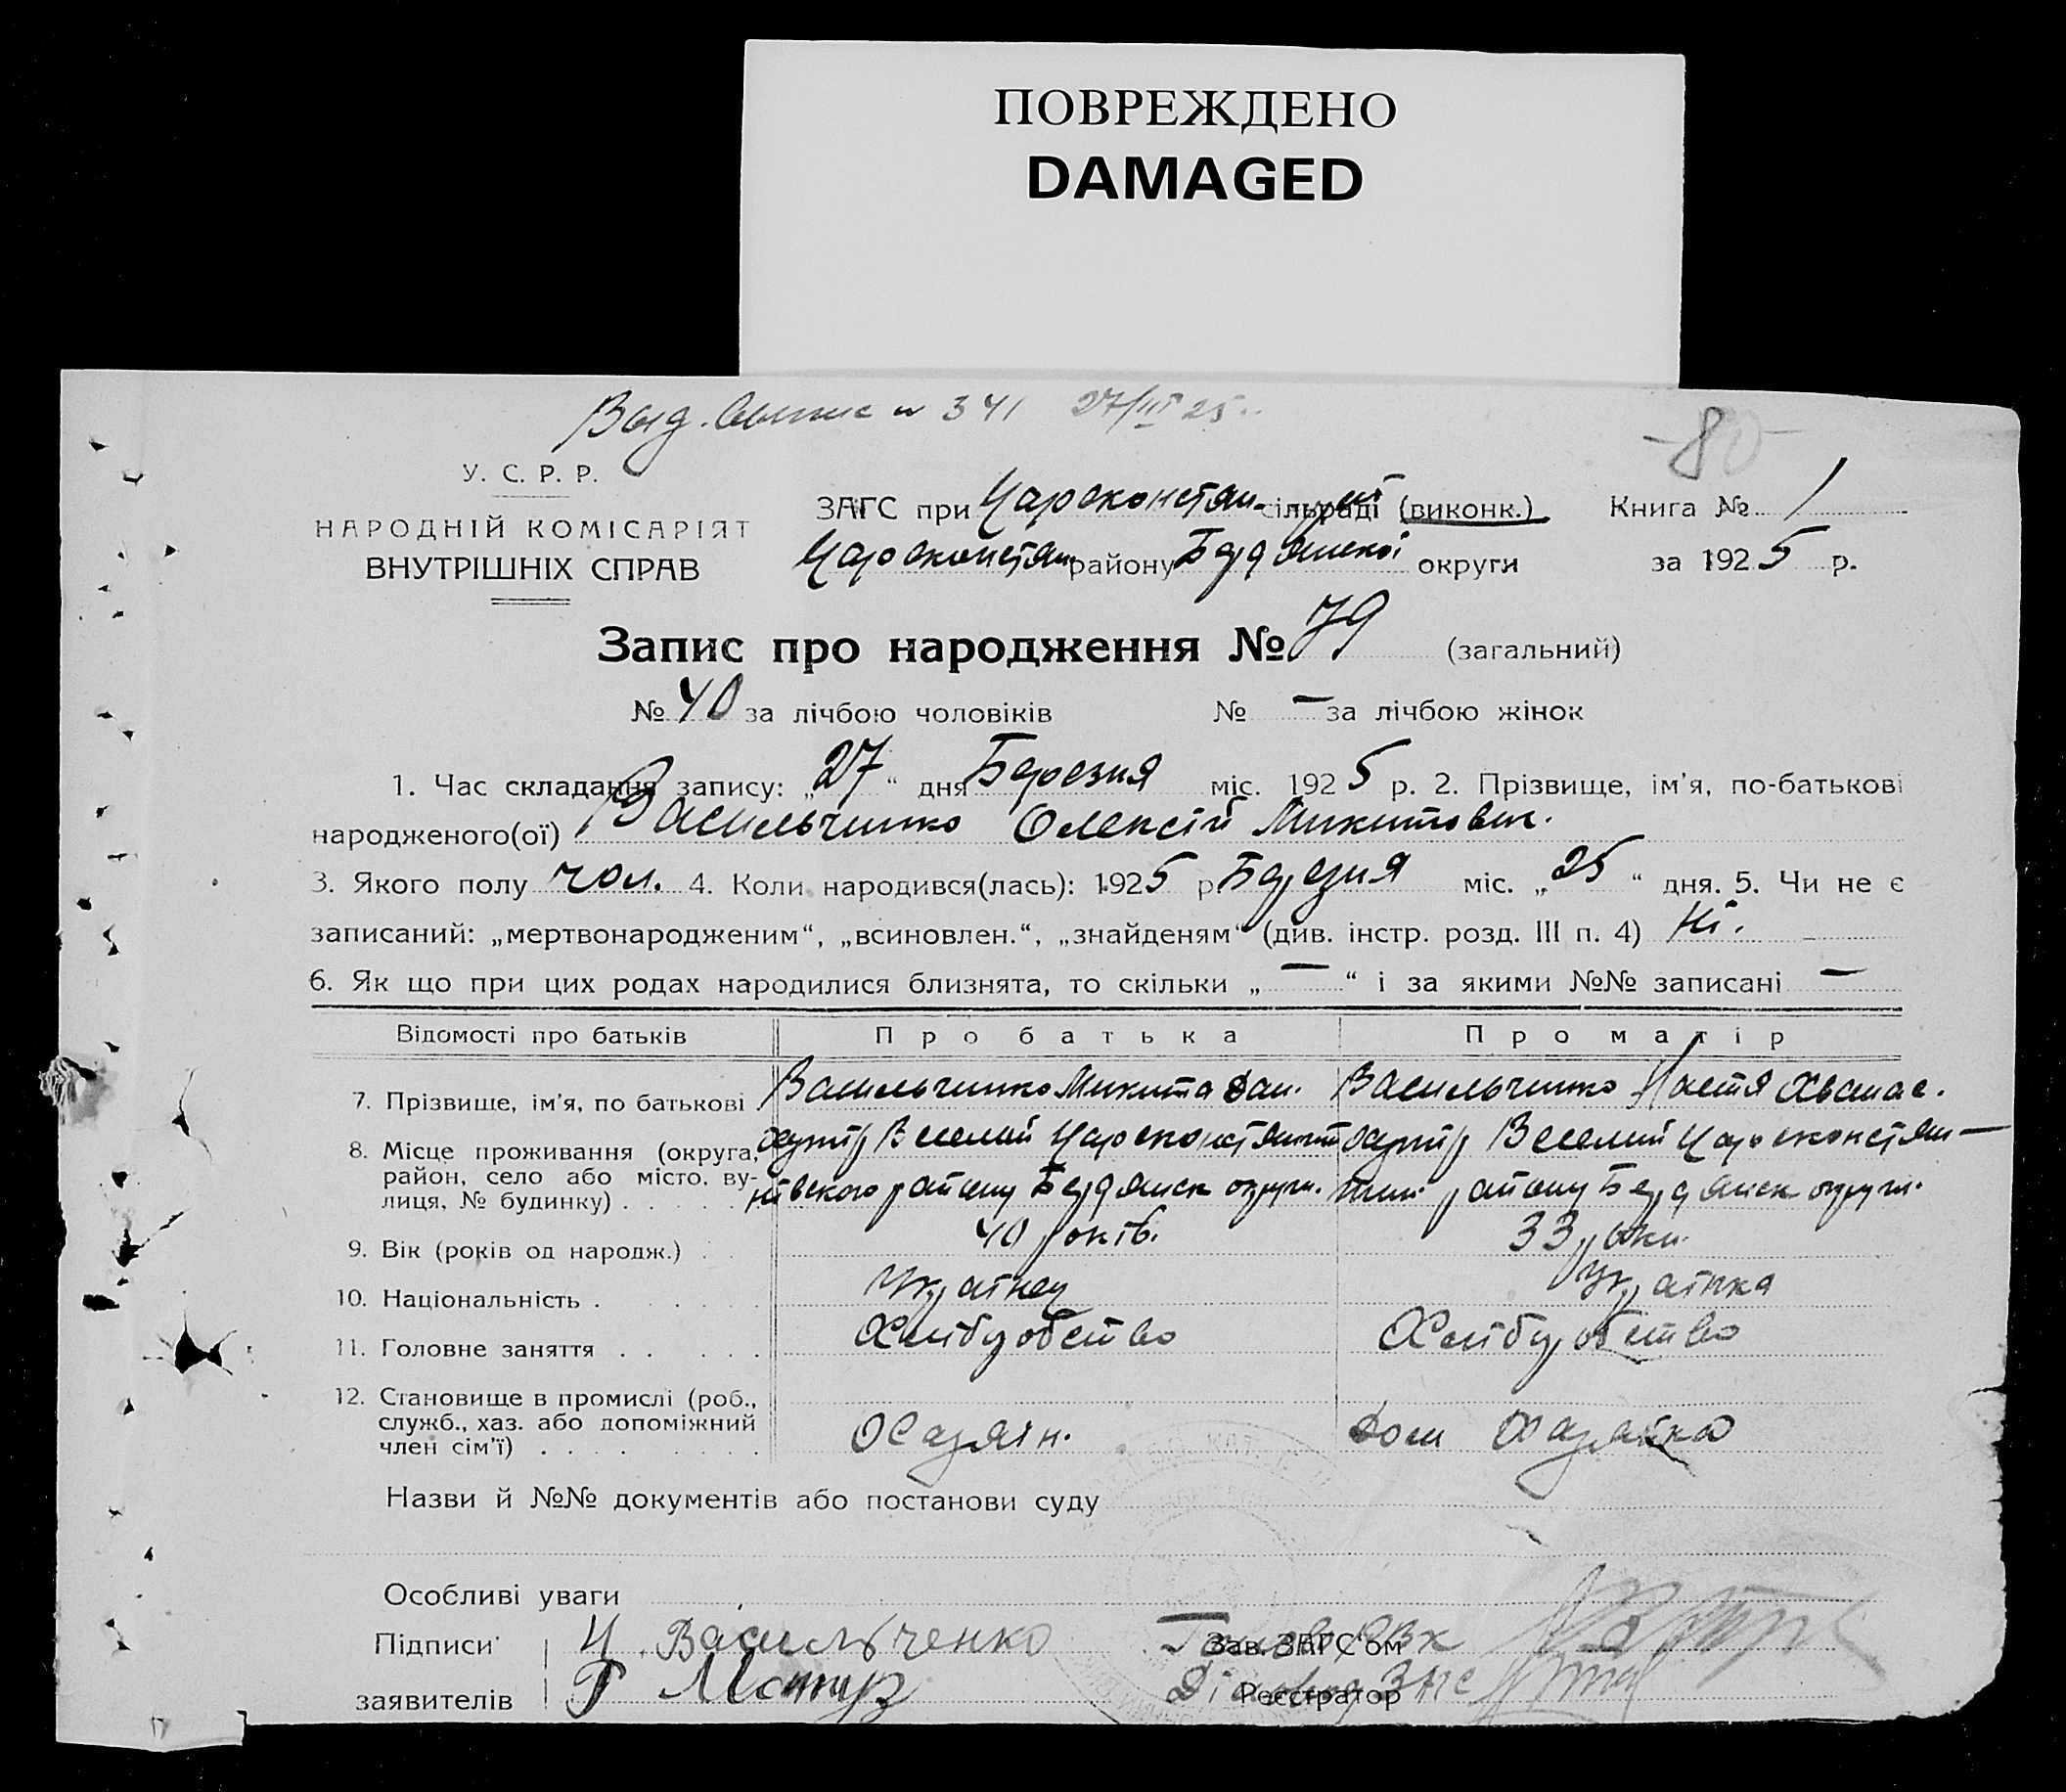 ПОВРЕЖДЕНО
DAMAGED
Выд. выпис № 341 27/III 25
-80-
У. С. Р. Р.
НАРОДНІЙ КОМІСАРІЯТ
ВНУТРІШНІХ СПРАВ
ЗАГС при Царокостян. сільраді (виконк.) Книга № 1
Цароконстян району Бердянської округи за 1925 р.
Запис про народження № 79 (загальний)
№ 40 за лічбою чоловіків № — за лічбою жінок
1. Час складання запису: „27“ дня Березня міс. 1925 р. 2. Прізвище, ім'я, по-батькові
народженого(ої) Васильченко Олексій Микитович.
3. Якого полу чол. 4. Коли народився(лась): 1925 р Березня міс. „25“ дня. 5. Чи не є
записаний: „мертвонародженим“, „всиновлен.“, „знайденям“ (див. інстр. розд. III п. 4) Ні.
6. Як що при цих родах народилися близнята, то скільки „—“ і за якими №№ записані —
Відомості про батьків Про батька Про матір
7. Прізвище, ім'я, по батькові Васильченко Микита Дан. Васильченко Настя Хванас.
8. Місце проживання (округа, район, село або місто, вулиця, № будинку) . . . . .
хутір Веселий Цароконстянти
нівського району Бердянск округи.
хутір Веселий Цароконстян—
тин. району Бердянск округи.
9. Вік (років од народж.) . . 40 років. 33 роки.
10. Національність . . . . . . Українец Українка
11. Головне заняття . . . . . Хліборобство Хліборобство
12. Становище в промислі (роб.,
служб., хаз. або допоміжний
член сім'ї) . . . . . . Хазяїн. Дом Хазяйка
Назви й №№ документів або постанови суду
Особливі уваги
Підписи Н. Васильченко Зав. ЗАГС'ом
заявителів Реєстратор